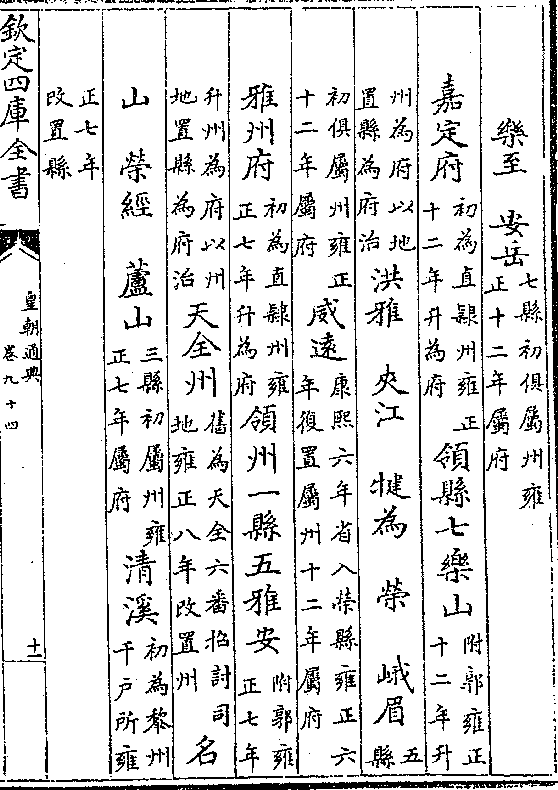 樂至　安岳 七縣初俱屬州雍正十二年屬府
嘉定府 初為直隸州雍正十二年升為府 領縣七樂山 附郭雍正十二年升
州為府以地置縣為府治 洪雅　夾江　犍為　榮　峨眉 五縣
初俱屬州雍正十二年屬府 威遠 康熙六年省入榮縣雍正六年復置屬州十二年屬府
雅州府 初為直隸州雍正七年升為府 領州一縣五雅安 附郭雍正七年
升州為府以州地置縣為府治 天全州 舊為天全六番招討司地雍正八年改置州 名
山　榮經　蘆山 三縣初屬州雍正七年屬府 清溪 初為黎州千戶所雍
正七年改置縣
欽定四庫全書
皇朝通典
卷九十四
十一